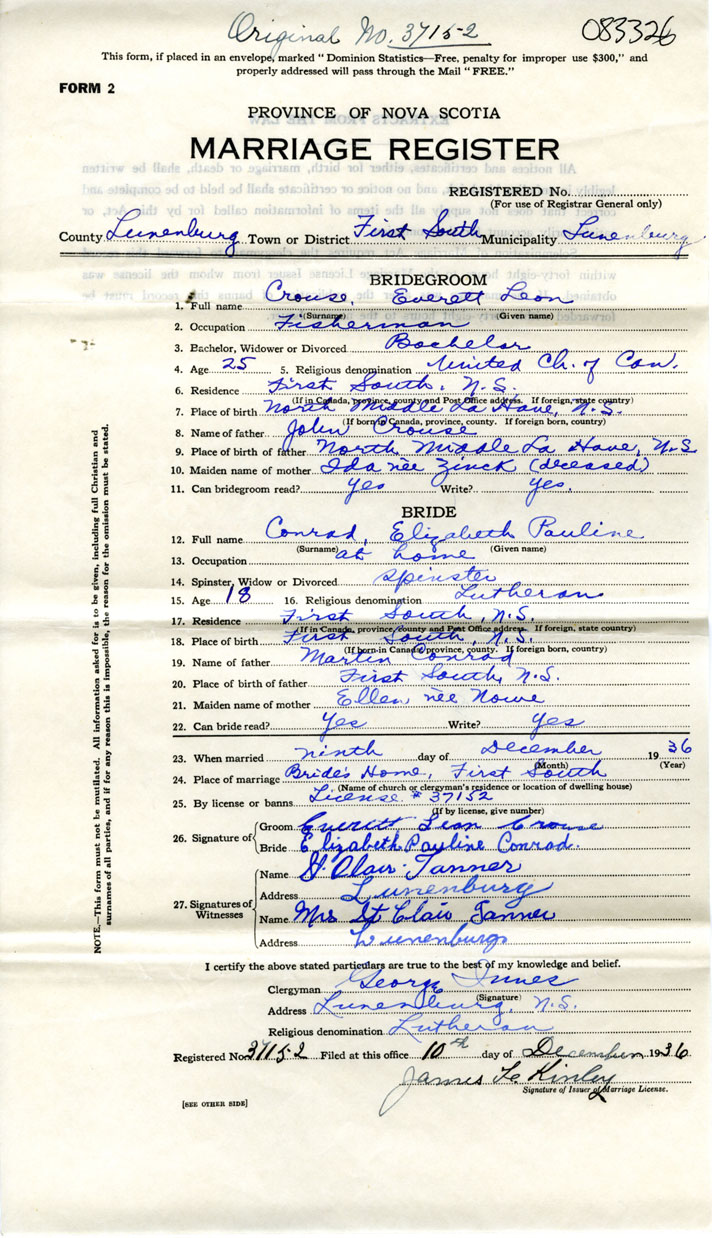 Original No. 37152
083326
This form, if placed in an envelope, marked "Dominion Statistics—Free, penalty for improper use $300," and
properly addressed will pass through the Mail "FREE."
FORM 2
PROVINCE OF NOVA SCOTIA
MARRIAGE REGISTER
REGISTERED No.
(For use of Registrar General only)
County Lunenburg Town or District First South Municipality Lunenburg
BRIDEGROOM
1. Full name Crouse, Everett Leon
(Surname) (Given name)
2. Occupation Fisherman
3. Bachelor, Widower or Divorced Bachelor
4. Age 25 5. Religious denomination United Ch. of Can.
6. Residence First South, N.S.
(If in Canada, province, county and Post Office address. If foreign, state country)
7. Place of birth North Middle La Have, N.S.
(If born in Canada, province, county. If foreign born, country)
8. Name of father John Crouse
9. Place of birth of father North Middle La Have, N.S
10. Maiden name of mother Ida nèe Zinck (deceased)
11. Can bridegroom read? yes Write? yes.
BRIDE
12. Full name Conrad, Elizabeth Pauline
(Surname) (Given name)
13. Occupation at home
14. Spinster, Widow or Divorced spinster
15. Age 18 16. Religious denomination Lutheran
17. Residence First South, N.S.
(If in Canada, province, county and Post Office address. If foreign, state country)
18. Place of birth First South, N.S.
(If born in Canada, province, county. If foreign born, country)
19. Name of father Martin Conrad
20. Place of birth of father First South, N.S.
21. Maiden name of mother Ellen nèe Nowe
22. Can bride read? Yes Write? yes
23. When married ninth day of December 1936
(Month) (Year)
24. Place of marriage Brides Home, First South
(Name of church or clergyman's residence or location of dwelling house)
25. By license or banns License # 37152
(If by license, give number)
26. Signature of
Groom Everett Leon Crouse
Bride Elizabeth Pauline Conrad.
27. Signatures of Witnesses
Name St Clair Tanner
Address Lunenburg
Name Mrs St Clair Tanner
Address Lunenburg
I certify the above stated particulars are true to the best of my knowledge and belief.
Clergyman George Innes
(Signature)
Address Lunenburg, N.S.
Religious denomination Lutheran
Registered No. 37152 Filed at this office 10th day of December 1936.
James Kinley
Signature of Issuer of Marriage License.
[SEE OTHER SIDE]
NOTE.—This form must not be mutilated. All information asked for is to be given, including full Christian and
surnames of all parties, and if for any reason this is impossible, the reason for the omission must be stated.